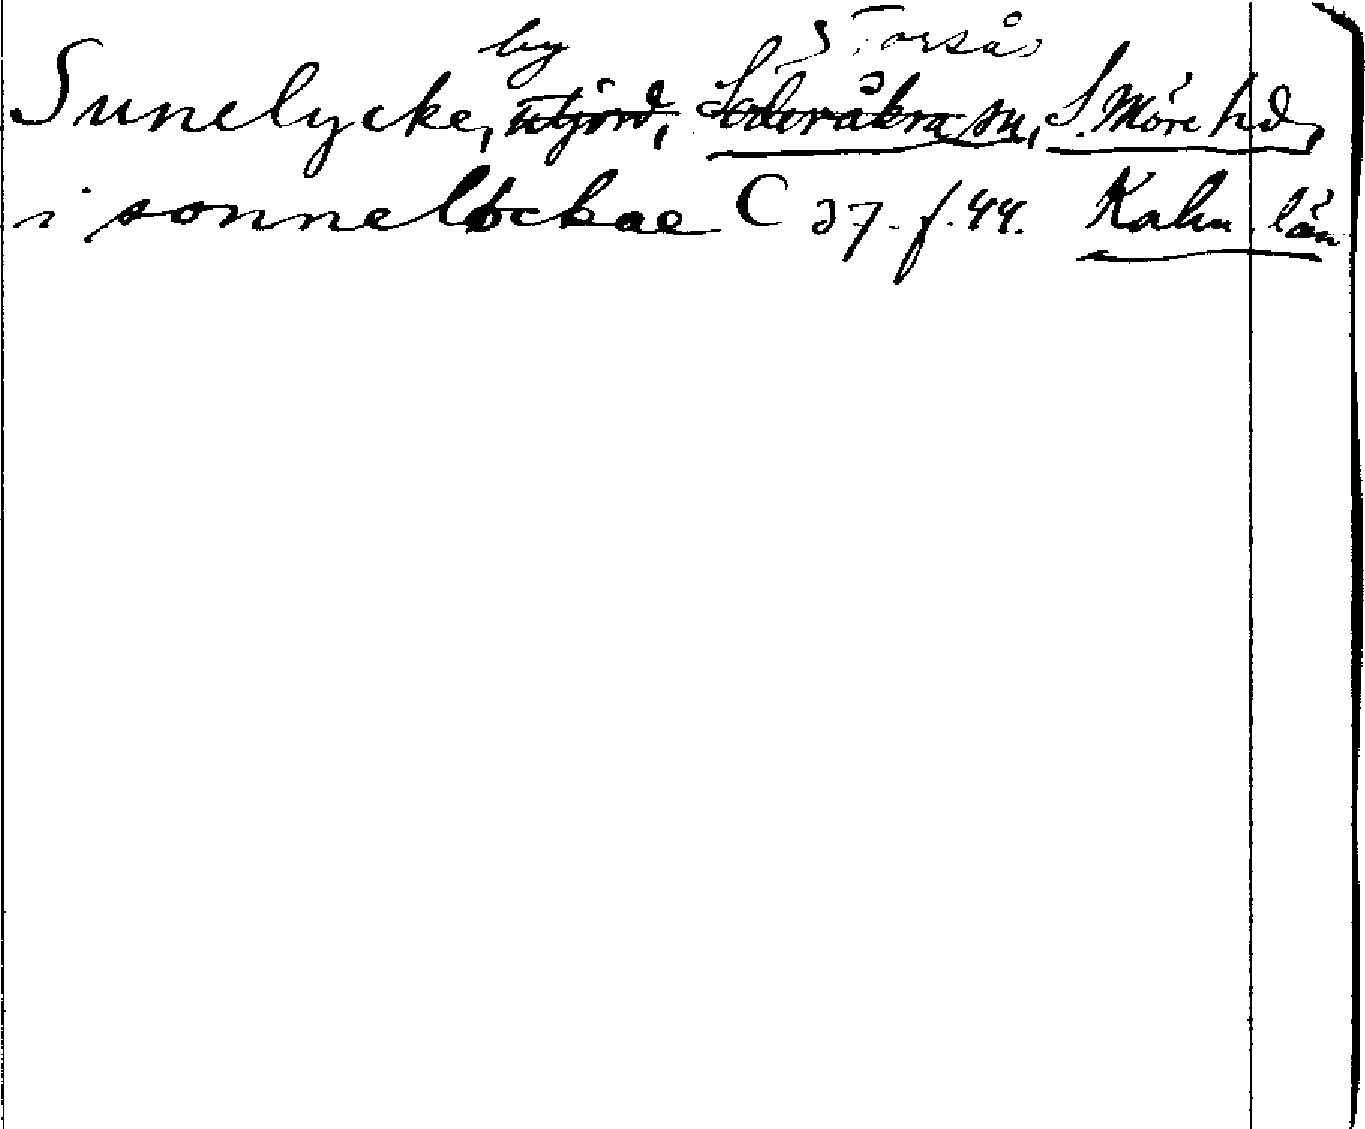 by Torsås
Sunelycke, utjord, Söderåkra sn, S. Möre hd,
i sonneløckae C 37. f. 44. Kalm. län